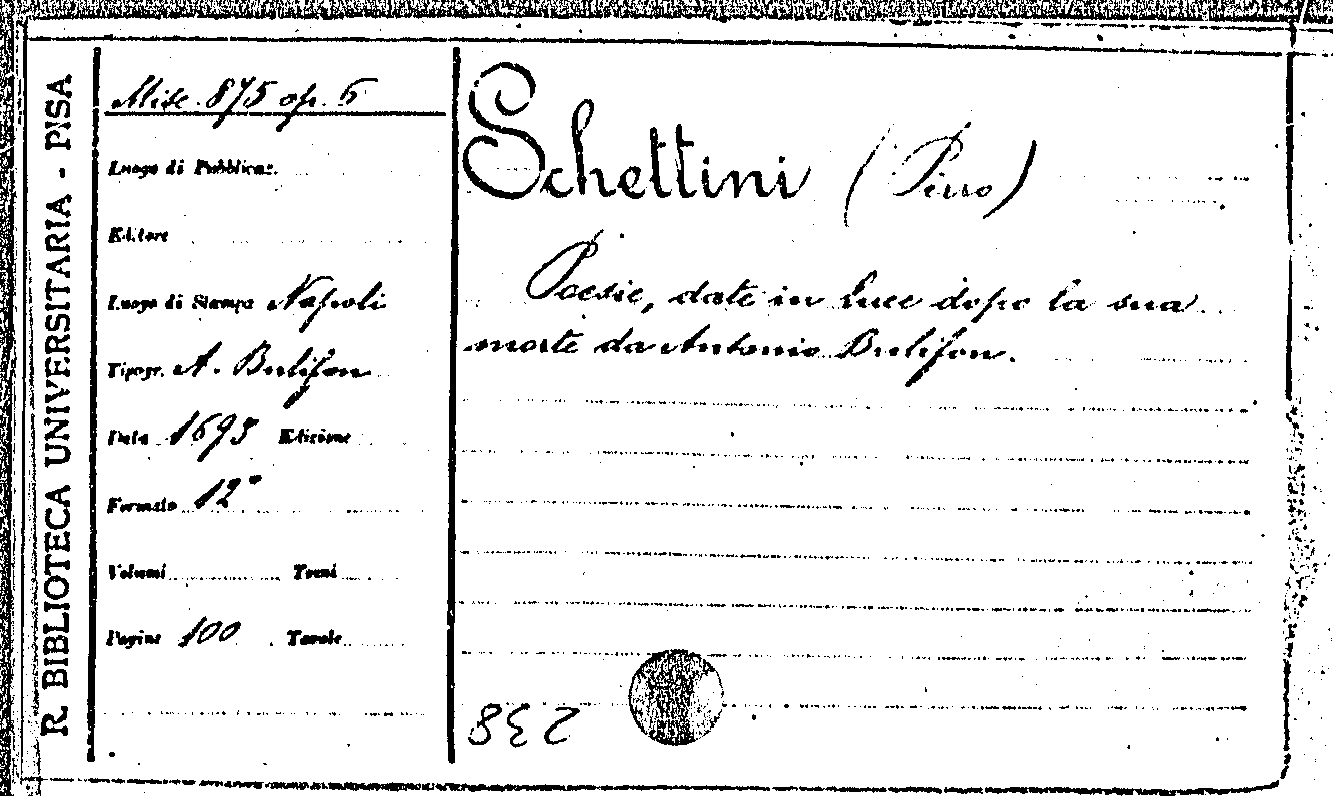 R. BIBLIOTECA UNIVERSITARIA - PISA
Misc. 875 op. 6
Luogo di Pubblicaz.
Editore
Luogo di Stampa Napoli
Tipogr. A. Bulifon
Data 1693 Edizione
Formato 12°
Volumi Tomi
Pagine 100 Tavole
Schettini (Pirro)
Poesie, date in luce dopo la sua
morte da Antonio Bulifon.
238